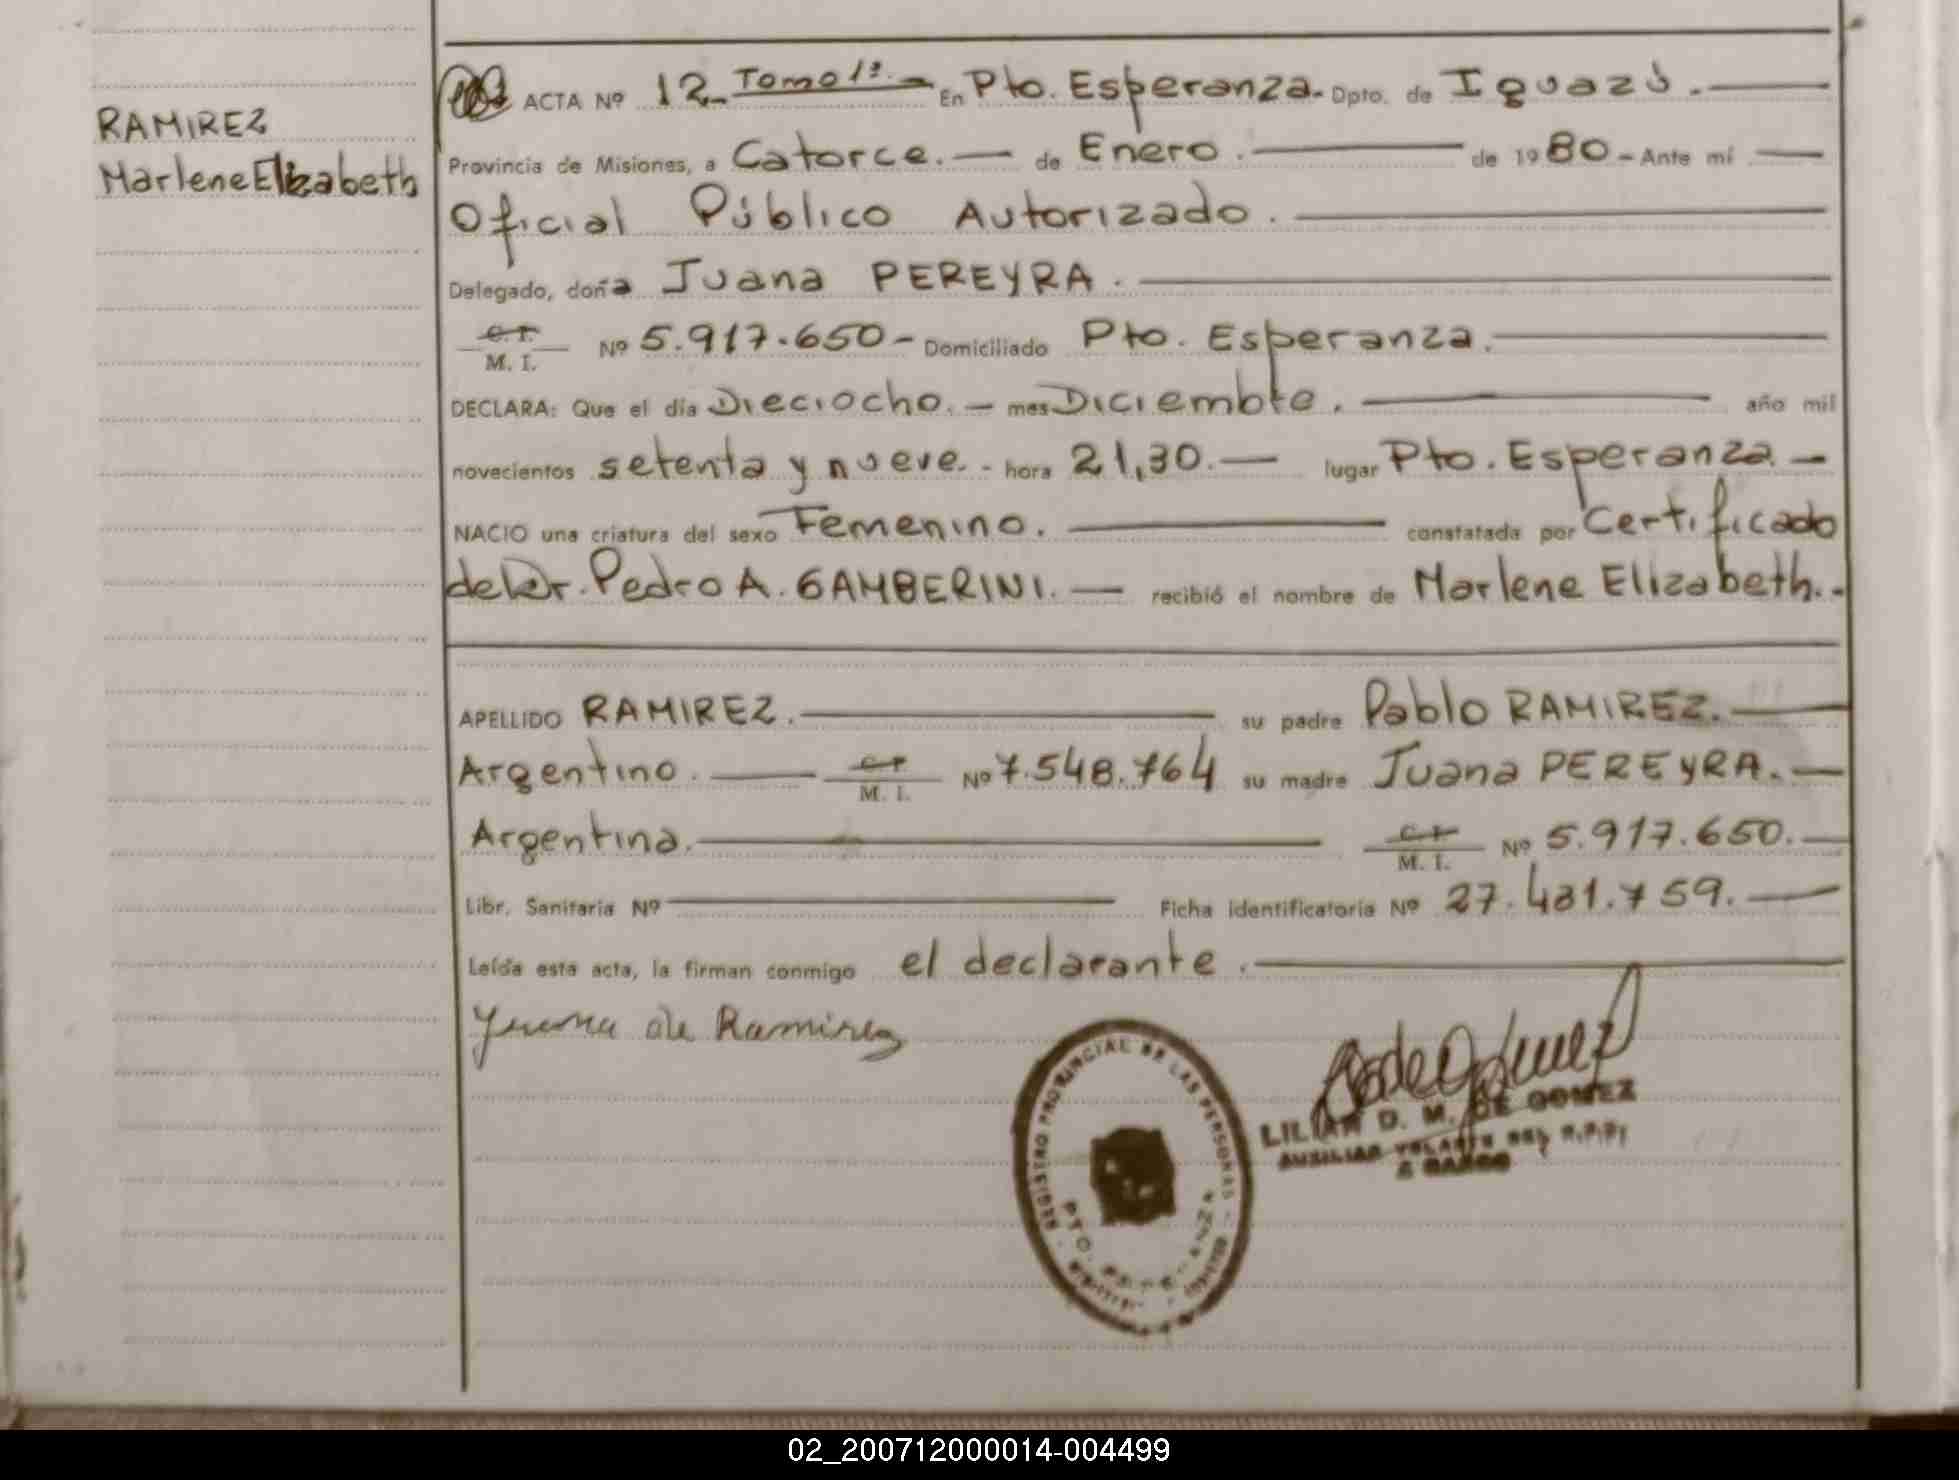 RAMIREZ
Marlene Elizabeth
ACTA Nº 12 Tomo 1º.- En Pto. Esperanza.- Dpto. de Iguazú.-
Provincia de Misiones, a Catorce.- de Enero.- de 1980.- Ante mí
Oficial Público Autorizado.-
Delegado, doña Juana PEREYRA.-
C. I.
M. I. Nº 5.917.650- Domiciliado Pto. Esperanza.-
DECLARA: Que el día Dieciocho.- mes Diciembre.- año mil
novecientos setenta y nueve.- hora 21,30.- lugar Pto. Esperanza.-
NACIO una criatura del sexo Femenino.- constatada por Certificado
del Dr. Pedro A. GAMBERINI.- recibió el nombre de Marlene Elizabeth.-
APELLIDO RAMIREZ.- su padre Pablo RAMIREZ.-
Argentino.- C. I. M. I. Nº 7.548.764 su madre Juana PEREYRA.-
Argentina.- C. I. M. I. Nº 5.917.650.-
Libr. Sanitaria Nº Ficha identificatoria Nº 27.481.759.-
Leída esta acta, la firman conmigo el declarante.-
Juana de Ramirez
REGISTRO PROVINCIAL DE LAS PERSONAS
PTO.
LILIAN D. M. DE GOMEZ
AUXILIAR VOLANTE DEL R.P.P.
A CARGO
02_200712000014-004499